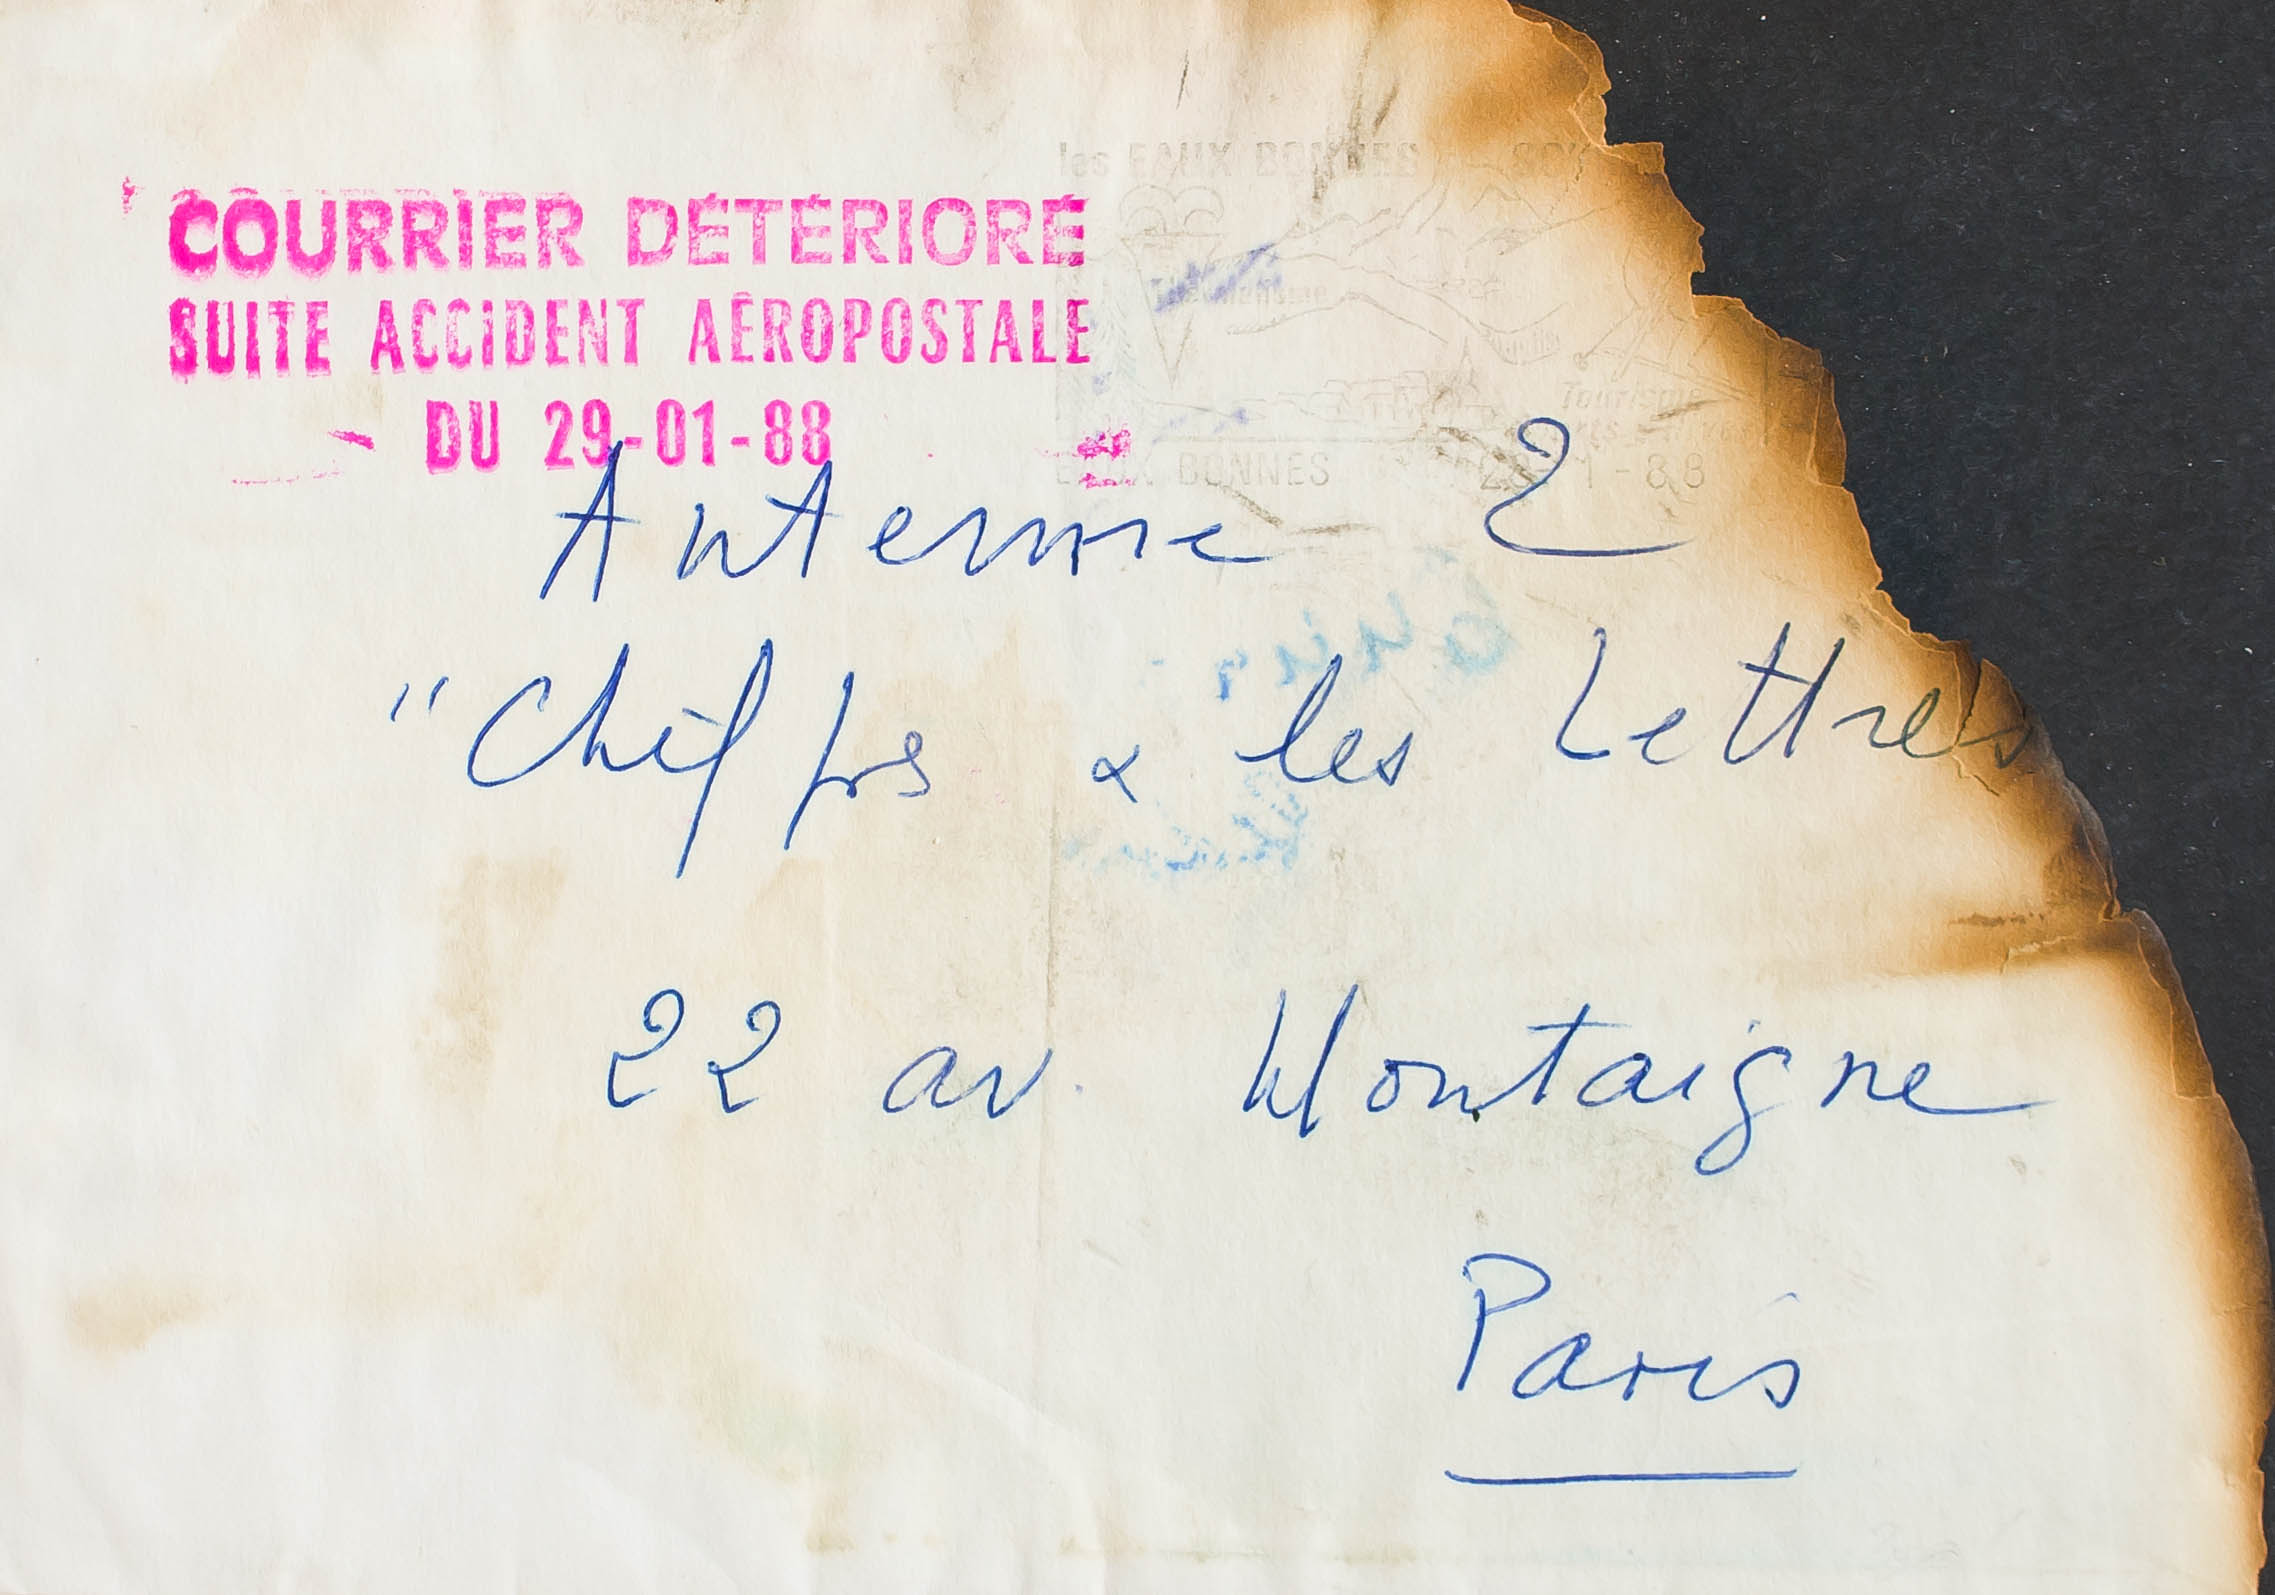 COURRIER DÉTÉRIORÉ
SUITE ACCIDENT AÉROPOSTALE
DU 29-01-88
les EAUX BONNES
Tourisme
EAUX BONNES 1-88
Antenne 2
"Chiffres & les Lettres
22 av. Montaigne
Paris